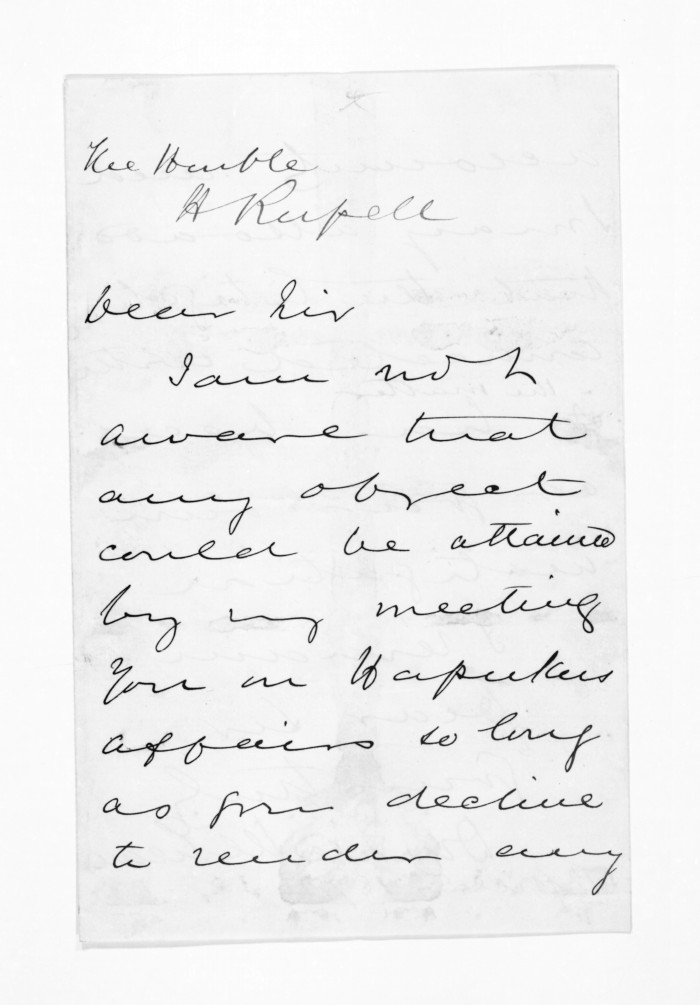 The Honble
H Russell
Dear Sir
I am not
aware that
any object
could be attained
by my meeting
you on Hapukus
affairs so long
as you decline
to render any